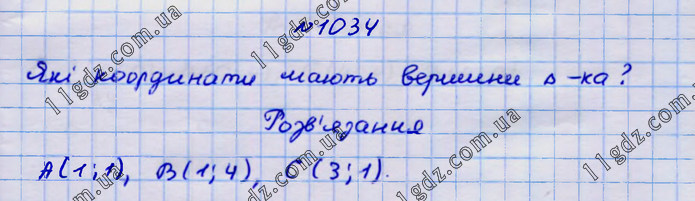 №1034
Які координати мають вершини Δ-ка?
Розв'язання
A(1;1), B(1;4), C(3;1).
11gdz.com.ua
11gdz.com.ua
11gdz.com.ua
11gdz.com.ua
11gdz.com.ua
11gdz.com.ua